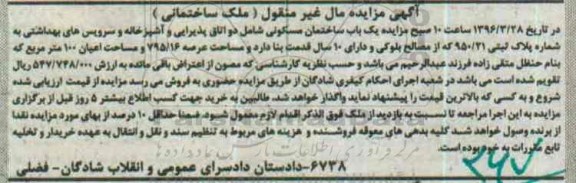 آگهی مزایده مال غیر منقول ( ملک ساختمانی )
در تاریخ ۱۳۹۶/۳/۲۸ ساعت ۱۰ صبح مزایده یک باب ساختمان مسکونی شامل دو اتاق پذیرایی و آشپزخانه و سرویس های بهداشتی به
شماره پلاک ثبتی ۹۵۰/۲۱ که از مصالح بلوکی و دارای ۱۰ سال قدمت بنا دارد و مساحت عرصه ۷۹۵/۱۶ و مساحت اعیان ۱۰۰ متر مربع که
بنام حنظل متقی زاده فرزند عبدالرحیم می باشد و حسب نظریه کارشناسی که مصون از اعتراض باقی مانده به ارزش ۵۴۷/۷۴۸/۰۰۰ ریال
تقویم شده است می باشد در شعبه اجرای احکام کیفری شادگان از طریق مزایده حضوری به فروش می رسد مزایده از قیمت ارزیابی شده
شروع و به کسی که بالاترین قیمت را پیشنهاد نماید واگذار خواهد شد. طالبین به خرید جهت کسب اطلاع بیشتر ۵ روز قبل از برگزاری
مزایده به این اجرا مراجعه تا نسبت به بازدید از ملک فوق الذکر اقدام لازم معمول شود. ضمنا حداقل ۱۰ درصد از بهای مورد مزایده نقدا
از برنده وصول خواهد شد کلیه بدهی های معوقه فروشنده و هزینه های مربوط به تنظیم سند و نقل و انتقال به عهده خریدار و تخلیه
تابع مقررات به خود بوده است.
۶۷۳۸-دادستان دادسرای عمومی و انقلاب شادگان- فضلی